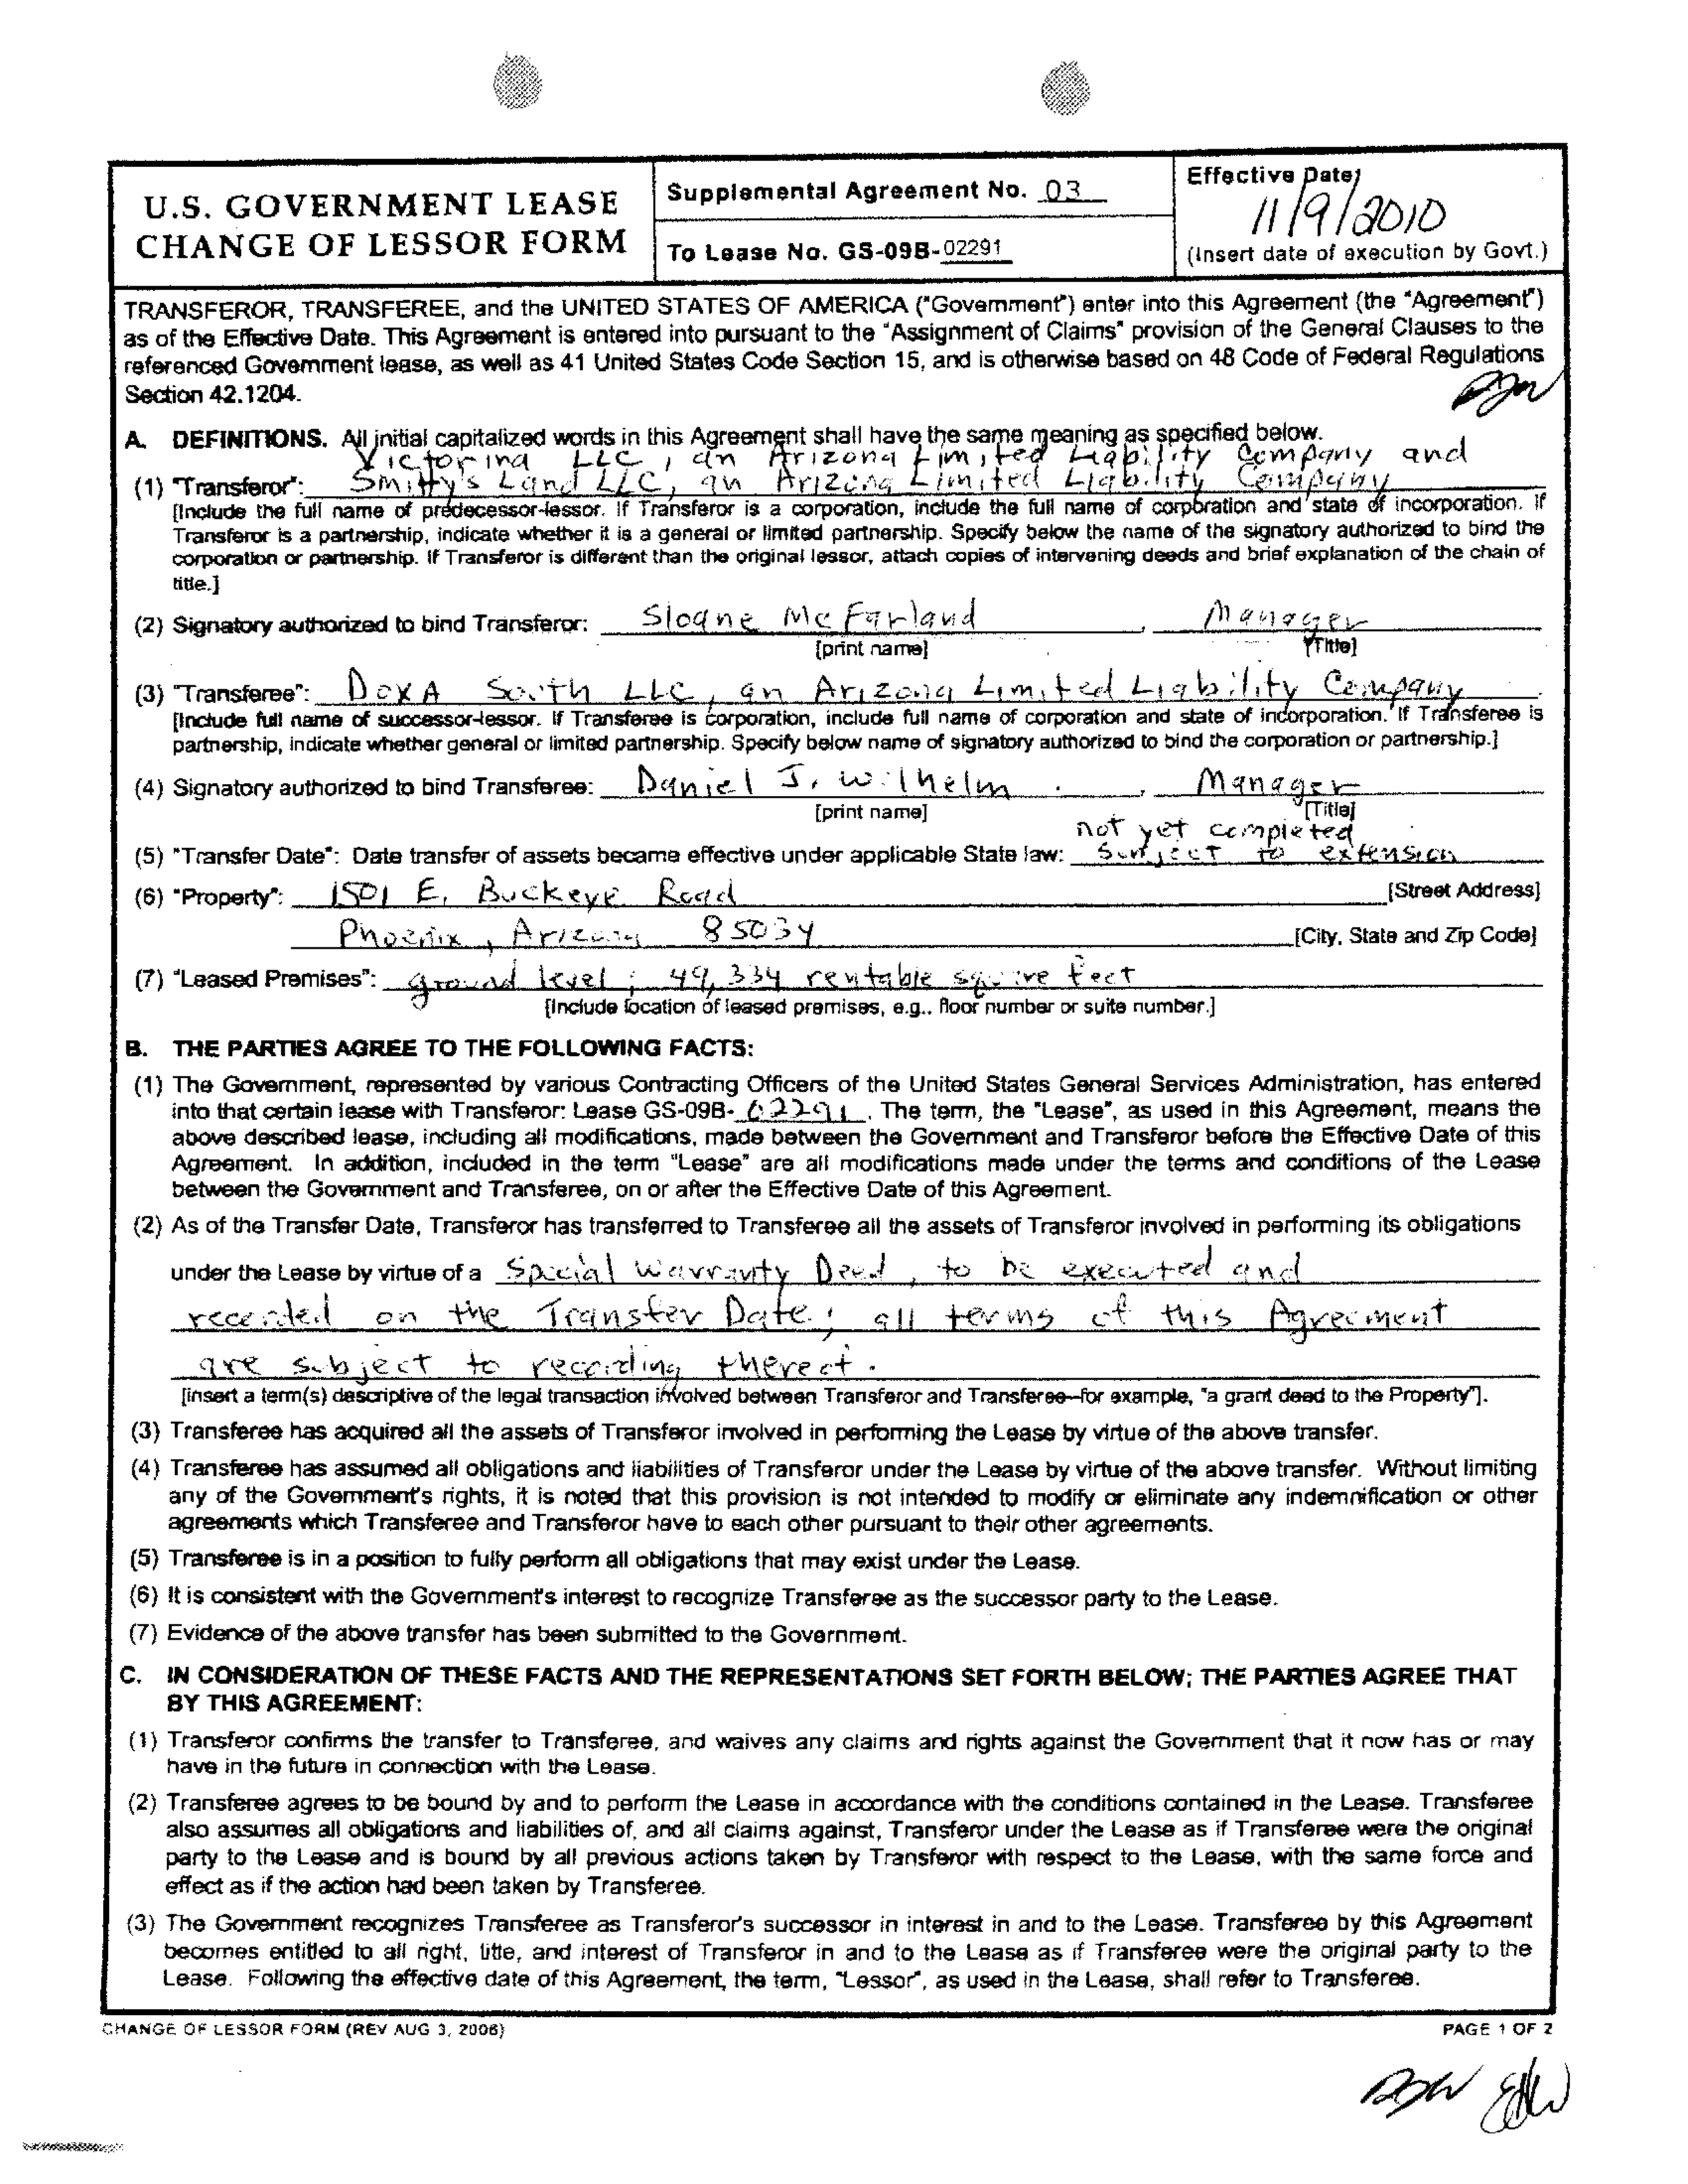 U.S. GOVERNMENT LEASE
CHANGE OF LESSOR FORM
Supplemental Agreement No. 03
To Lease No. GS-09B-02291
Effective Date:
11/9/2010
(Insert date of execution by Govt.)
TRANSFEROR, TRANSFEREE, and the UNITED STATES OF AMERICA ("Government") enter into this Agreement (the "Agreement")
as of the Effective Date. This Agreement is entered into pursuant to the "Assignment of Claims" provision of the General Clauses to the
referenced Government lease, as well as 41 United States Code Section 15, and is otherwise based on 48 Code of Federal Regulations
Section 42.1204.
A. DEFINITIONS. All initial capitalized words in this Agreement shall have the same meaning as specified below.
Victorina LLC, an Arizona Limited Liability Company and
(1) "Transferor": Smitty's Land LLC, an Arizona Limited Liability Company
[Include the full name of predecessor-lessor. If Transferor is a corporation, include the full name of corporation and state of incorporation. If
Transferor is a partnership, indicate whether it is a general or limited partnership. Specify below the name of the signatory authorized to bind the
corporation or partnership. If Transferor is different than the original lessor, attach copies of intervening deeds and brief explanation of the chain of
title.]
(2) Signatory authorized to bind Transferor: Sloane McFarland, Manager
[print name] [Title]
(3) "Transferee": DOXA South LLC, an Arizona Limited Liability Company.
[Include full name of successor-lessor. If Transferee is corporation, include full name of corporation and state of incorporation. If Transferee is
partnership, indicate whether general or limited partnership. Specify below name of signatory authorized to bind the corporation or partnership.]
(4) Signatory authorized to bind Transferee: Daniel J. Wilhelm, Manager
[print name] [Title]
not yet completed
(5) "Transfer Date": Date transfer of assets became effective under applicable State law: subject to extension
(6) "Property": 1501 E. Buckeye Road [Street Address]
Phoenix, Arizona 85034 [City, State and Zip Code]
(7) "Leased Premises": ground level; 49,334 rentable square feet
[Include location of leased premises, e.g., floor number or suite number.]
B. THE PARTIES AGREE TO THE FOLLOWING FACTS:
(1) The Government, represented by various Contracting Officers of the United States General Services Administration, has entered
into that certain lease with Transferor: Lease GS-09B-02291. The term, the "Lease", as used in this Agreement, means the
above described lease, including all modifications, made between the Government and Transferor before the Effective Date of this
Agreement. In addition, included in the term "Lease" are all modifications made under the terms and conditions of the Lease
between the Government and Transferee, on or after the Effective Date of this Agreement.
(2) As of the Transfer Date, Transferor has transferred to Transferee all the assets of Transferor involved in performing its obligations
under the Lease by virtue of a Special Warranty Deed, to be executed and
recorded on the Transfer Date; all terms of this Agreement
are subject to recording thereof.
[insert a term(s) descriptive of the legal transaction involved between Transferor and Transferee--for example, "a grant deed to the Property"].
(3) Transferee has acquired all the assets of Transferor involved in performing the Lease by virtue of the above transfer.
(4) Transferee has assumed all obligations and liabilities of Transferor under the Lease by virtue of the above transfer. Without limiting
any of the Government's rights, it is noted that this provision is not intended to modify or eliminate any indemnification or other
agreements which Transferee and Transferor have to each other pursuant to their other agreements.
(5) Transferee is in a position to fully perform all obligations that may exist under the Lease.
(6) It is consistent with the Government's interest to recognize Transferee as the successor party to the Lease.
(7) Evidence of the above transfer has been submitted to the Government.
C. IN CONSIDERATION OF THESE FACTS AND THE REPRESENTATIONS SET FORTH BELOW; THE PARTIES AGREE THAT
BY THIS AGREEMENT:
(1) Transferor confirms the transfer to Transferee, and waives any claims and rights against the Government that it now has or may
have in the future in connection with the Lease.
(2) Transferee agrees to be bound by and to perform the Lease in accordance with the conditions contained in the Lease. Transferee
also assumes all obligations and liabilities of, and all claims against, Transferor under the Lease as if Transferee were the original
party to the Lease and is bound by all previous actions taken by Transferor with respect to the Lease, with the same force and
effect as if the action had been taken by Transferee.
(3) The Government recognizes Transferee as Transferor's successor in interest in and to the Lease. Transferee by this Agreement
becomes entitled to all right, title, and interest of Transferor in and to the Lease as if Transferee were the original party to the
Lease. Following the effective date of this Agreement, the term, "Lessor", as used in the Lease, shall refer to Transferee.
CHANGE OF LESSOR FORM (REV AUG 3, 2006)
PAGE 1 OF 2